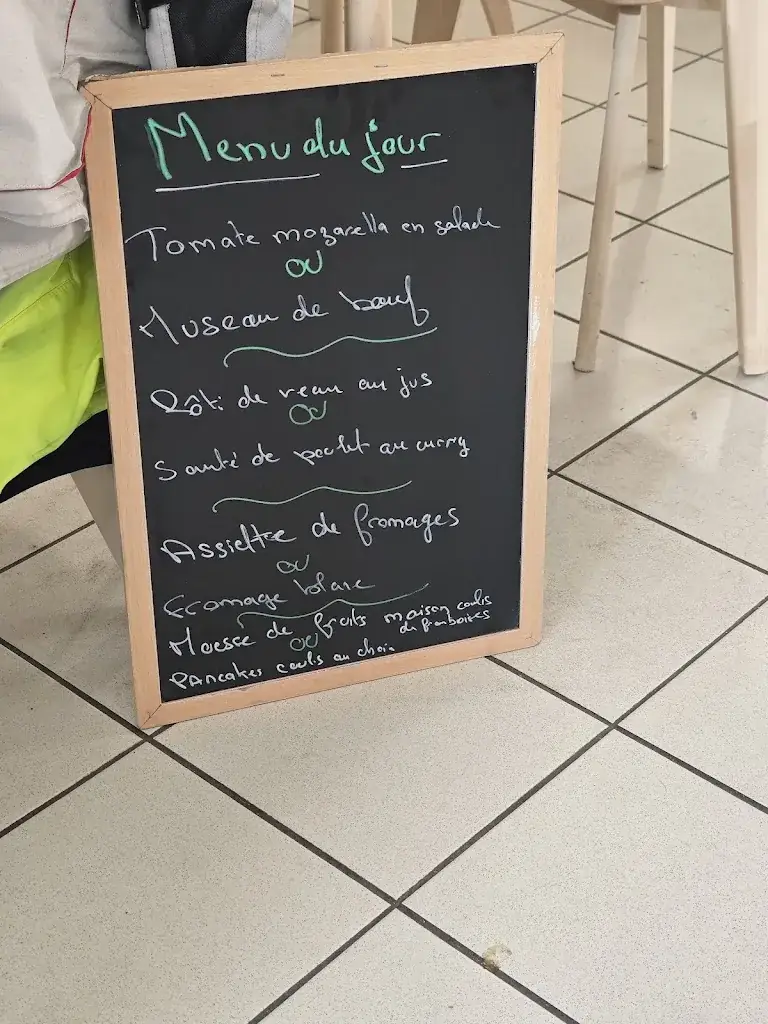 Menu du jour
Tomate mozarella en salade
ou
Museau de bœuf
Rôti de veau au jus
ou
Sauté de poulet au curry
Assiette de fromages
ou
Fromage blanc
Mousse de fruits maison coulis
de framboises
ou
Pancakes coulis au choix